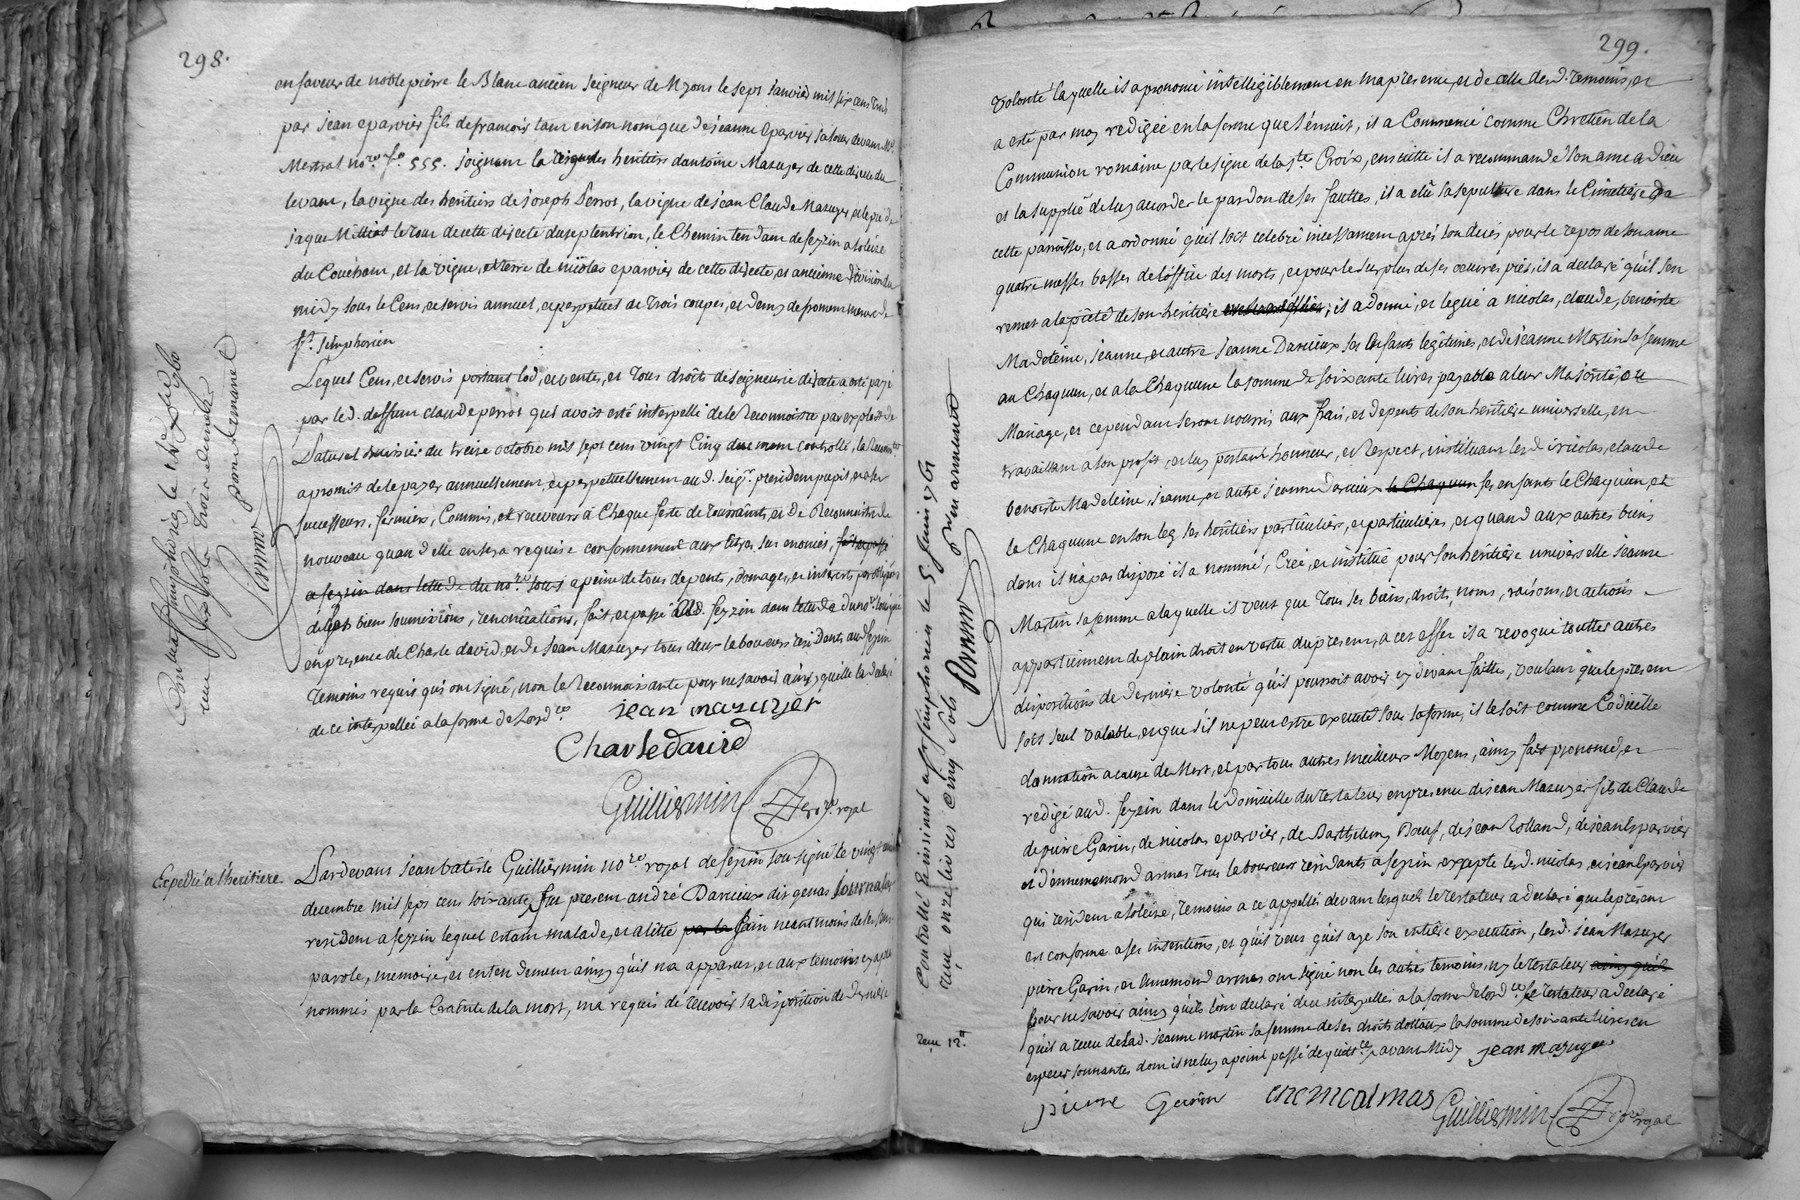 298.
en faveur de noble pierre le Blanc ancien seigneur de Myons le sept janvier mil six cens
par jean eparvier fils de francois tant en son nom que de jeanne Eparvier sa soeur devant Me
Mestral nore fo 555. joignant la vigne des heritiers dantoine Mazuyer de cette directe du
levant, la vigne des heritiers de joseph Perrot, la vigne de jean Claude Mazuyer et le pré de
jaque le tout de cette directe du septentrion, le Chemin tendant de feyzin a soleize
du Couchant, et la vigne, et terre de nicolas eparvier de cette directe, et ancienne division du
midy sous le Cens, et servis annuel, et perpetuel de trois coupes, et demy de froment mesure de
st. simphorien
Lequel Cens, et servis portant lod, et ventes, et tous droits de seigneurie directe a esté payé
par led. deffunt claude perrot qui avoit esté interpellé de le Reconnoitre par exploit de
Laturel huissier du treize octobre mil sept cens vingt Cinq duement controllé, la Reconnoissante
a promit de le payer annuellement, et perpetuellement aud. seigr. president pupil, et a ses
successeurs, fermiers, Commis, et receveurs à Chaque feste de toussaints, et de Reconnoitre de
nouveau quand elle en sera requise conformement aux titres sus enoncés, fait et passé
a feyzin dans letude du nore sous a peine de tous depents, domages, et interets par obligation
de ses biens soumissions, renonciations, fait, et passé aud. feyzin dans letude du nore. soussigné
en presence de Charle david, et de Jean Mazuyer tous deux laboureurs residents aud. feyzin
temoins requis qui ont signé, non le Reconnoissante pour ne savoir ainsy quelle la declaré
de ce interpellée a la forme de lordce
jean mazuyer
Charle david
Guilliermin nore. royal
Controllé a st simphorien le
reçu sols trois deniers
Perron par Armand
Expedié a lheritiere.
Pardevant Jean batiste Guilliermin nore royal de feyzin sousigné le vingt
decembre mil sept cens soixante, fut present andré Darcieux dit genas journalier
resident a feyzin lequel estant malade, et alitté par la sain neantmoins de ses sens
parole, memoire, et entendement ainsy quil na apparu, et aux temoins cy apres
nommés par la Crainte de la mort, ma requis de recevoir sa disposition de derniere
299.
volonté laquelle il a prononcé intelligiblement en ma presence, et de celle desd. temoins, et
a esté par moy redigée en la forme que sensuit, il a Commencé comme Chretien de la
Communion romaine par le signe de la ste Croix, ensuitte il a recommandé son ame a Dieu
et la supplié de luy accorder le pardon de ses fauttes, il a elû sa sepulture dans le Cimetiere de
cette parroisse, et a ordonné quil soit celebré incessament aprés son decés pour le repos de son ame
quatre messes basses de loffice des morts, et pour le surplus de ses oeuvres pies, il a declaré quil sen
remet a la pieté de son heritiere ; il a donné, et legué a nicolas, claude, benoiste
Madeleine, jeanne, et autre jeanne Darcieux ses Enfants legitimes, et de jeanne Martin sa femme
au Chaquun, et a la Chaquune la somme de soixante livres payable a leur Majorité, ou
Mariage, et cependant seront nourris aux frais, et depents de son heritiere universelle, en
travaillant a son profit, et luy portant honneur, et Respect, instituant lesd. nicolas, claude
benoiste Madeleine, jeanne, et autre jeanne darcieux le Chaquun ses enfants le Chaquun, et
la Chaquune en son leg ses heritiers particuliers, et particulieres, et quand aux autres biens
dont il na pas disposé il a nommé, Creé, et institué pour son heritiere universelle jeanne
Martin sa femme a laquelle il veut que tous ses biens, droits, noms, raisons, et actions
appartiennent de plain droit en vertu du present, a cet effet il a revoqué touttes autres
dispositions de derniere volonté quil pourroit avoir cy devant faittes, voulant que le present
soit seul valable, et que sil ne peut estre executé sous sa forme, il le soit comme Codicille
donnation a cause de Mort, et par tous autres meilleurs Moyens, ainsy fait prononcé, et
redigé aud. feyzin dans le domicille du testateur en presence de jean Mazuyer fils de Claude
de pierre Garin, de nicolas eparvier, de Barthelemy Boeuf, de jean Rolland, de jean Eparvier
et dennemond armas tous laboureurs residants a feyzin excepté lesd. nicolas, et jean Eparvier
qui resident a soleize, temoins a ce appellés devant lesquels le testateur a declaré que le present
est conforme a ses intentions, et quil veut quil aye son entiere execution, lesd. jean Mazuyer
pierre Garin, et Ennemond armas ont signé non les autres temoins, ny le testateur ainsy quils
pour ne savoir ainsy quils lont declaré de ce interpellés a la forme de lordce. le testateur a declaré
quil a receu de lad. jeanne martin sa femme de ses droits dotaux la somme de soixante livres en
especes sonnantes dont il ne luy a point passé de quittce, avant Midy
jean mazuyer
pierre Garin
enemonarmas
Guilliermin nore. royal
Controllé et insinué a st simphorien le 5 janvier 1761
reçu onze livres Cinq sols
Perron par armand
reçu 12#